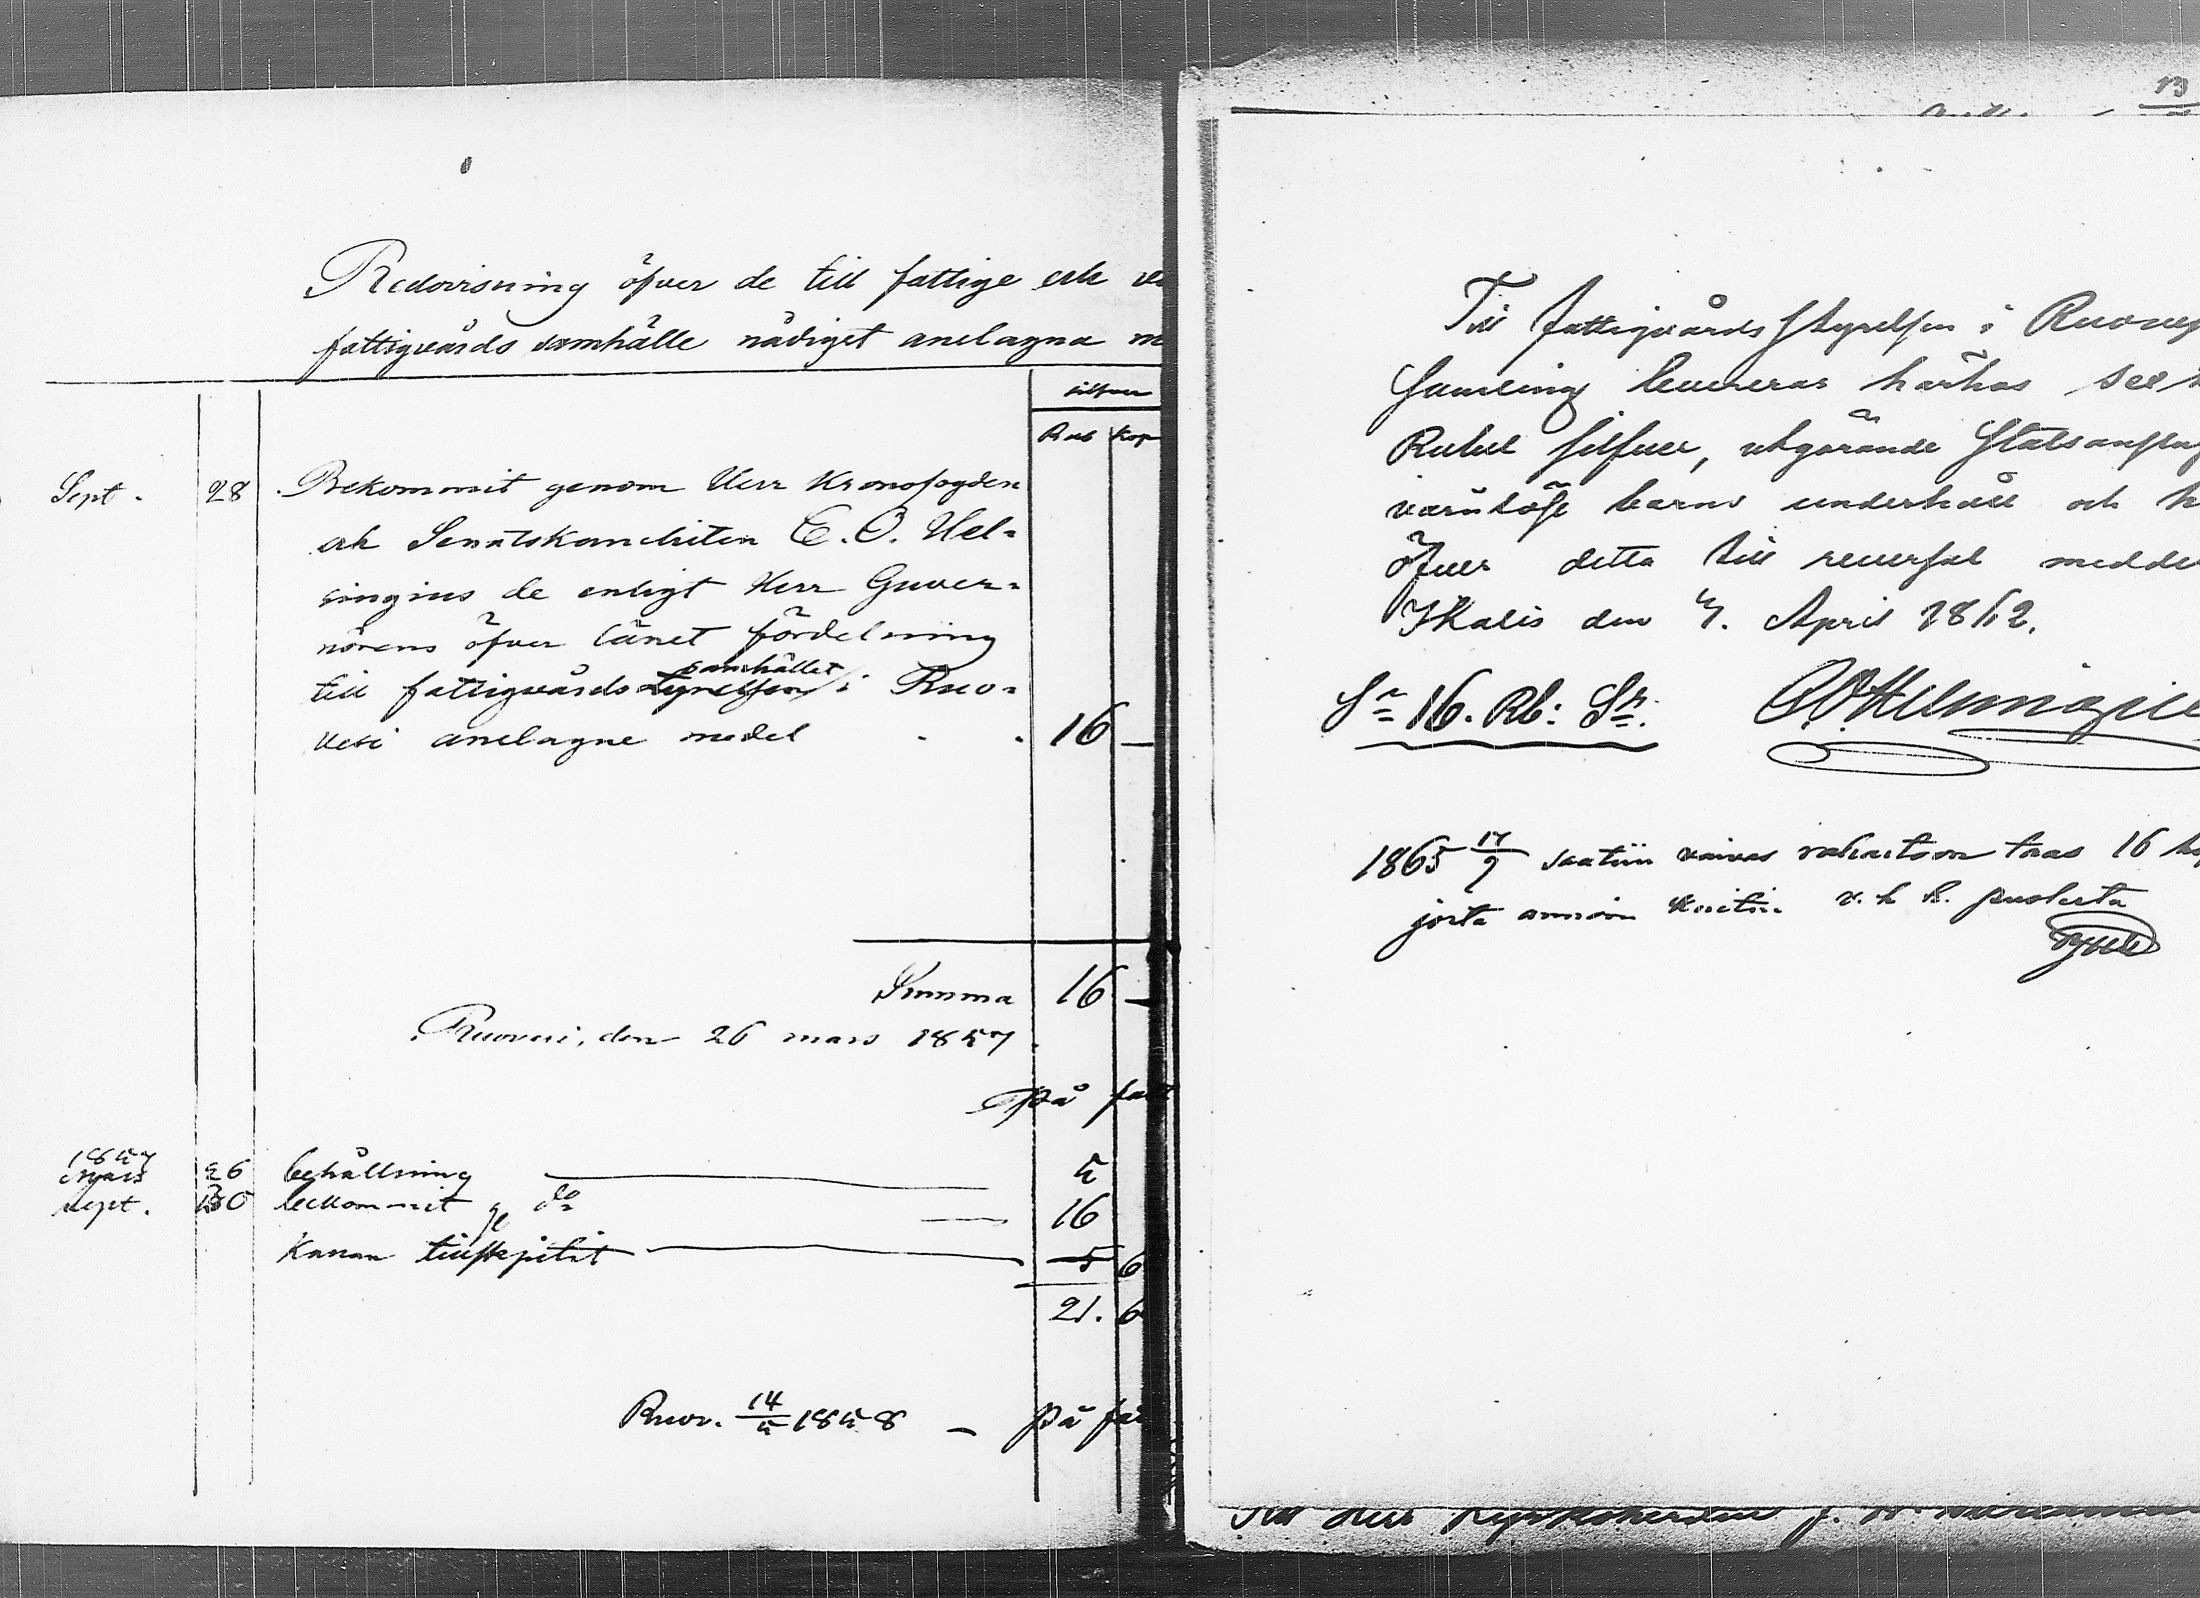 Redovisning öfver de till fattige och
fattigvårds samhälle nådigst anslagna
silfver
Rub Kop
Sept. 28 Bekommit genom Herr Kronofogden
och Senatskanslisten C. O. Hel-
singius de enligt Herr Guver-
nörens öfver länet fördelning
samhället
till fattigvårds Styrelsen i Ruo-
vesi anslagne medel . . 16 —
Summa 16 —
Ruovesi, den 26 mars 1857.
På
1857
Mars 26 behållning 5
Sept. 30 bekommit do 16
Kanan 5 6
21. 6
Ruov. 14/5 1858 — På
13
Till Fattigvårds Styrelsen i
Samling levereras härhos
Rubel Silfver, utgörande
värnlöse barns underhåll och
öfver detta till reversal
Ikalis den 7. April 1862.
Sa 16. Rb: Sr. C. O. Helsingius
1865 17/9 saatiin vaivas raha taas 16
josta annoin kuitin v. h. h. puolesta
Till Herr Kyrkoherden